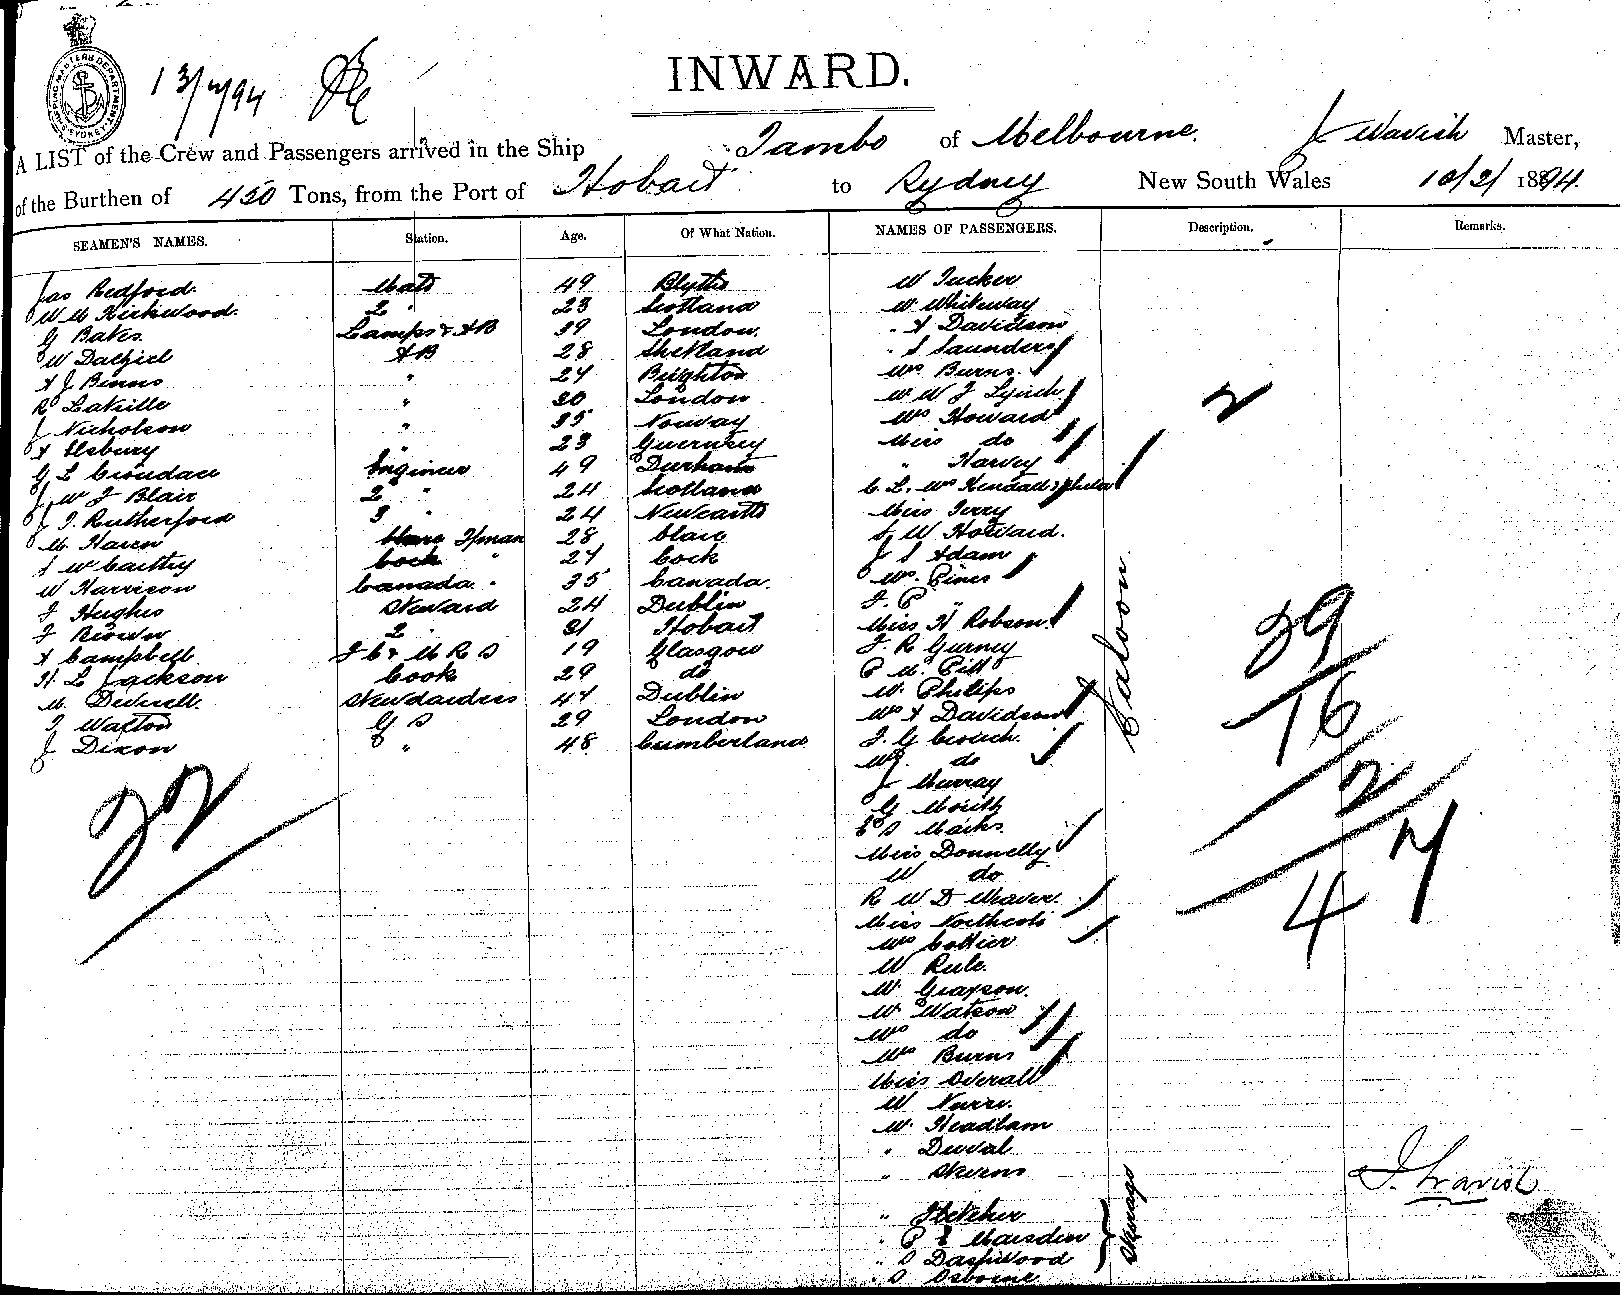 SHIPPING MASTERS DEPARTMENT SYDNEY
13/2/94
INWARD.
A LIST of the Crew and Passengers arrived in the Ship Tambo of Melbourne. Master,
of the Burthen of 450 Tons, from the Port of Hobart to Sydney New South Wales 10/2/1894.
SEAMEN'S NAMES. Station. Age. Of What Nation. NAMES OF PASSENGERS. Description. Remarks.
Jas Redford Mate 49 Blyth W Tucker
W M Kirkwood. 2 " 23 Scotland W. Whiteway
G Bates. Lamps & AB 39 London. " A Davidson
W Dalziel AB 28 Shetland " S Saunders
A J Binns " 24 Brighton Mrs Burns.
R Lakille " 30 London W W J Lynch
J Nicholson " 35 Norway Mrs Howard
A Ilsbury " 23 Guernsey Miss do
G L Croudace Engineer 49 Durham " Harvey
J W J Blair 2 " 24 Scotland C. L. Mrs Kendall & child
J T. Rutherford 3 " 24 Newcastle Miss Terry
M. Haren Fireman 28 Clare S W Howard.
J W Carthy " 24 Cork J S Adam
W Harrison " 35 Canada. Mrs. Pines
J Hughes Steward 24 Dublin J. P "
J Brown 2 " 31 Hobart Miss H Robson
A Campbell 19 Glasgow J. R Gurney
H L Jackson Cook 29 do P M. Pitt
M. Dewell. Stewardess 44 Dublin W. Philips
T Warton G S 29 London Mrs A Davidson
J Dixon " 48 Cumberland J. G Crouch.
Mrs. do
J Murray
G Morith
E S Marks.
Miss Donnelly
W do
R W D Weaver.
Miss Northcote
Mrs Collier
W Rule.
W. Grayson.
W. Watson
Mrs do
Mrs Burns
Miss Overall
W Nurse.
W. Headlam
" Duval
" Stevens
" Fletcher
" P E Marsden
" D Dashwood
" D Osborne
Saloon
Steerage
22
2
39
16
2
4 7
J. Gravish